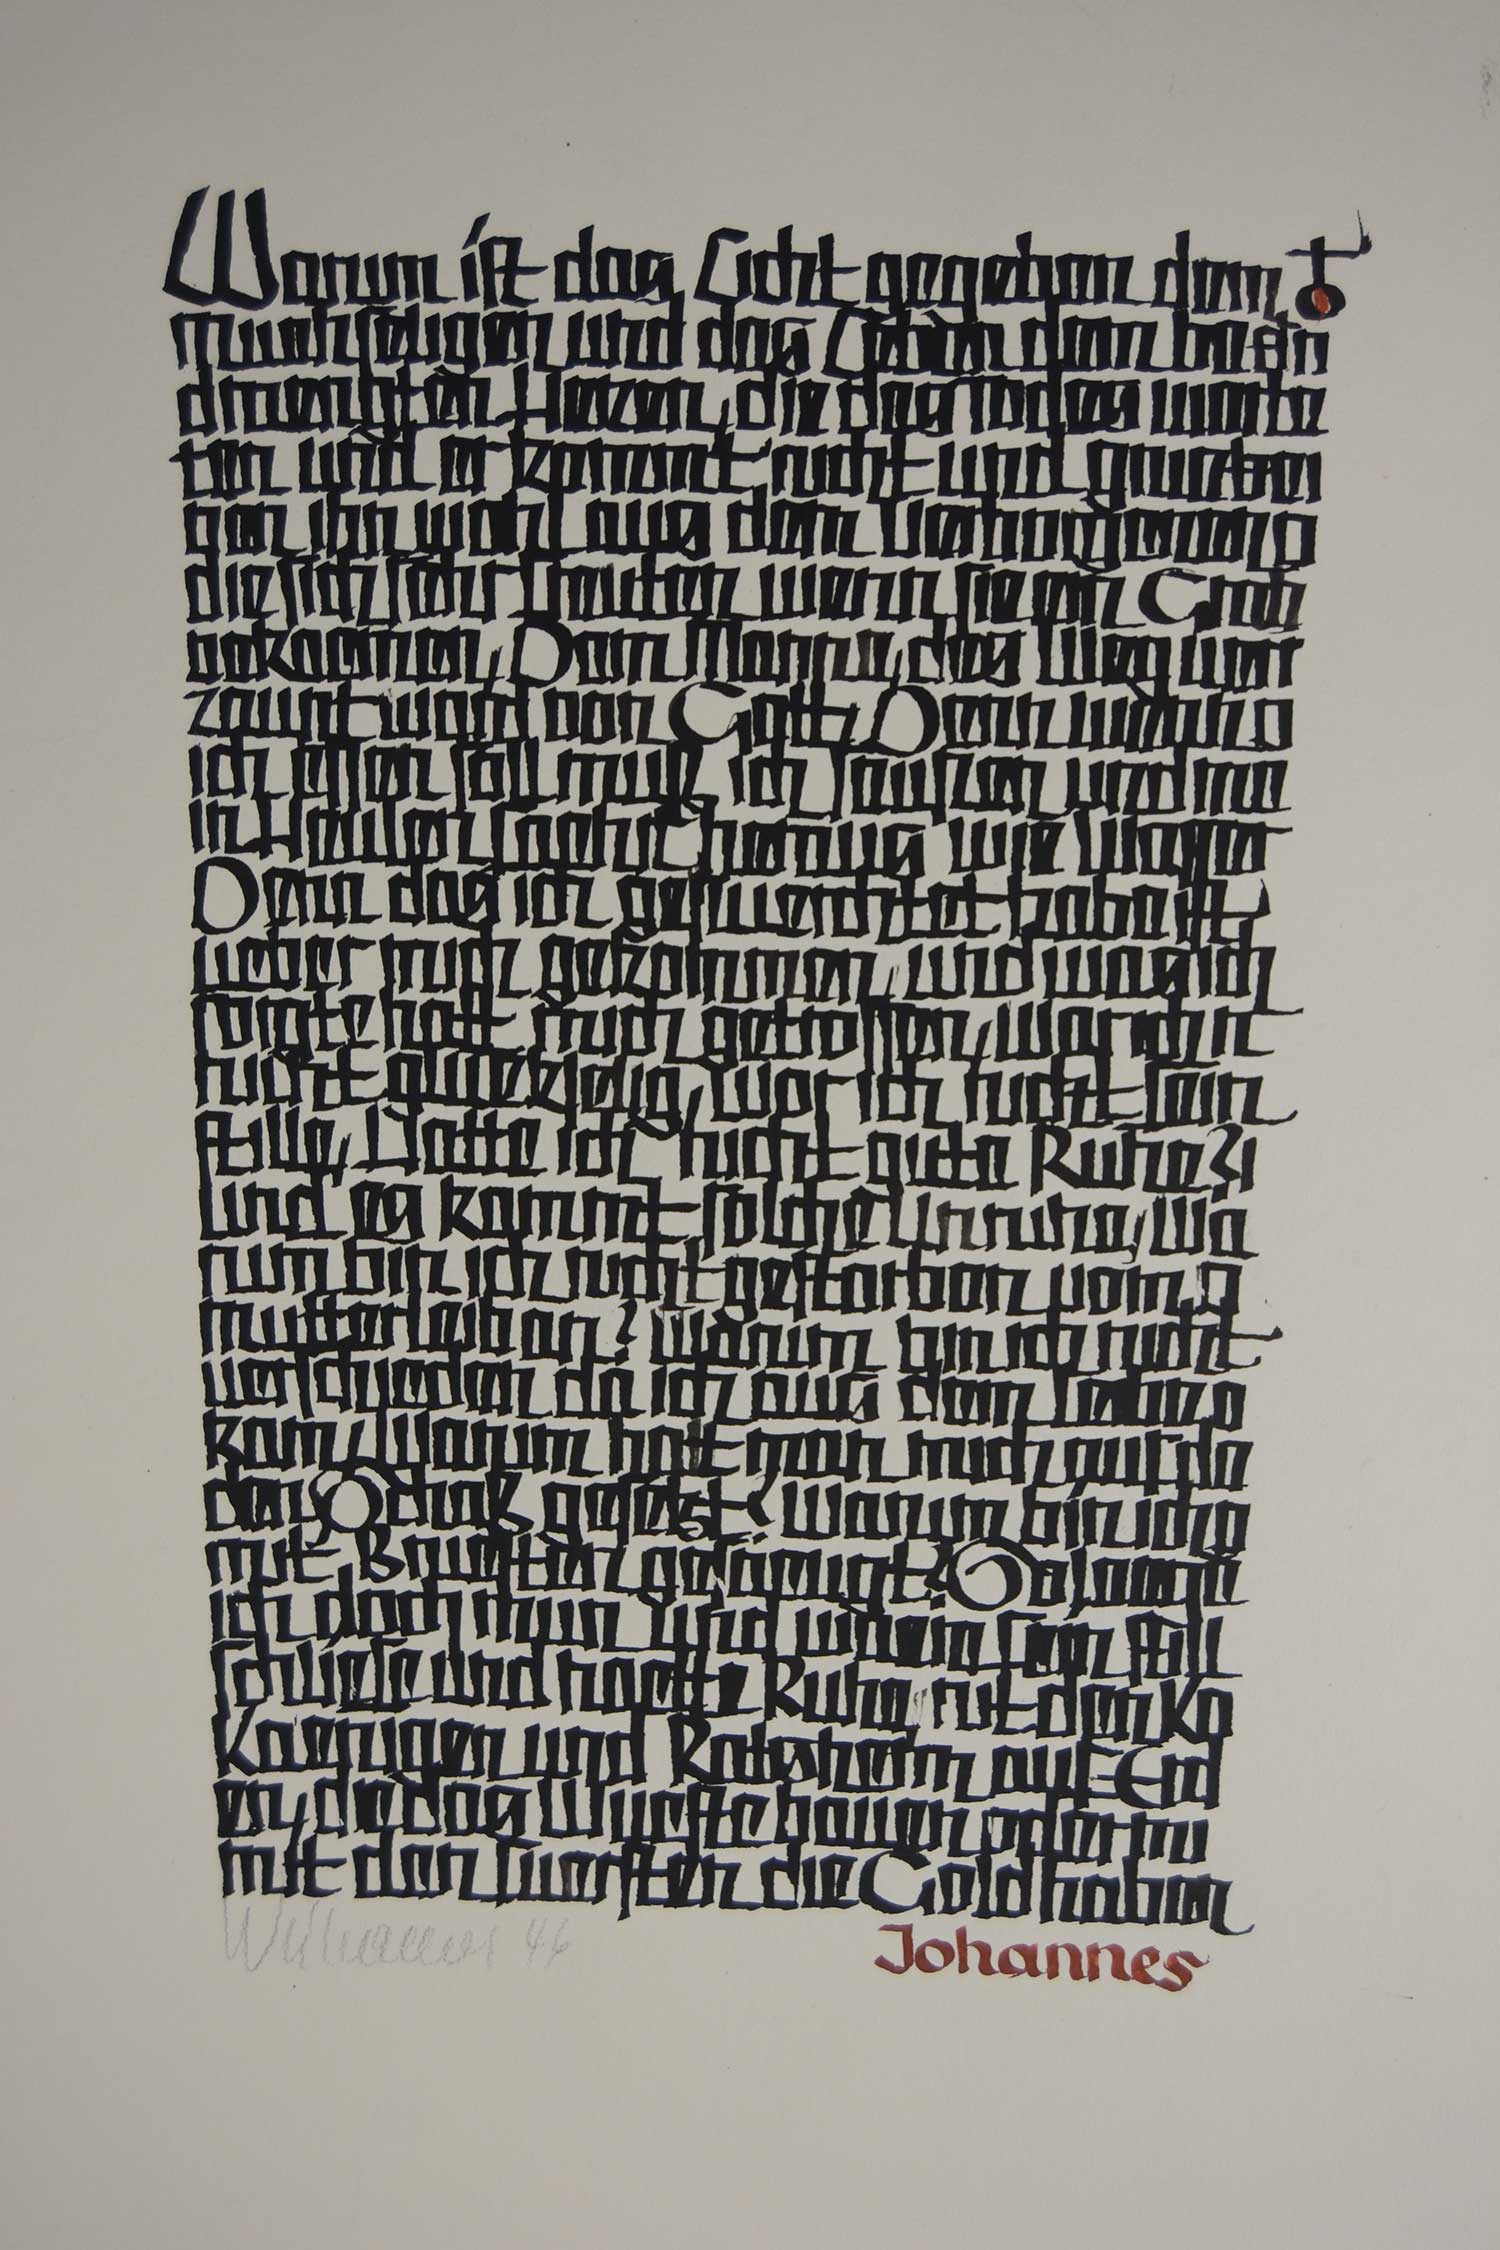 Warum ist das Licht gegeben dem
muehseligen und das Leben dem
Herzen, die des Todes warte
ten und er kommt nicht und grueben
gen ihn wohl aus dem Verborgenen
die sich sehr freuten wenn sie ein Grab
bekaemen, Dem Manne, des Weg ver
zaunt ward von Gott, Denn wenn
ich essen soll muß ich seufzen und me
in Heulen faehrt heraus wie Wasser
Denn das ich gefuerchtet habe ist
ueber mich gekommen, und was ich
sorgte hatt mich getroffen, War ich n
nicht glueckselig, war ich nicht fein
stille, Hatte ich nicht gute Ruhe?
und es kommt solche Unruhe, Wa
rum bin ich nicht gestorben vom
mutterleib an? Warum bin ich nicht
verschieden da ich aus dem Leibe
kam, Warum hatt man mich auf de
den Schoß gesetzt? Warum bin ich
mit Bruesten gesaeugt? So laege
ich doch nun und waere fein still
schliefe und haette Ruhe mit den Ko
Koenigen und Ratsherrn auf Erd
en, die das Wueste bauen oder mi
mit den Fuersten die Gold haben
Johannes
46